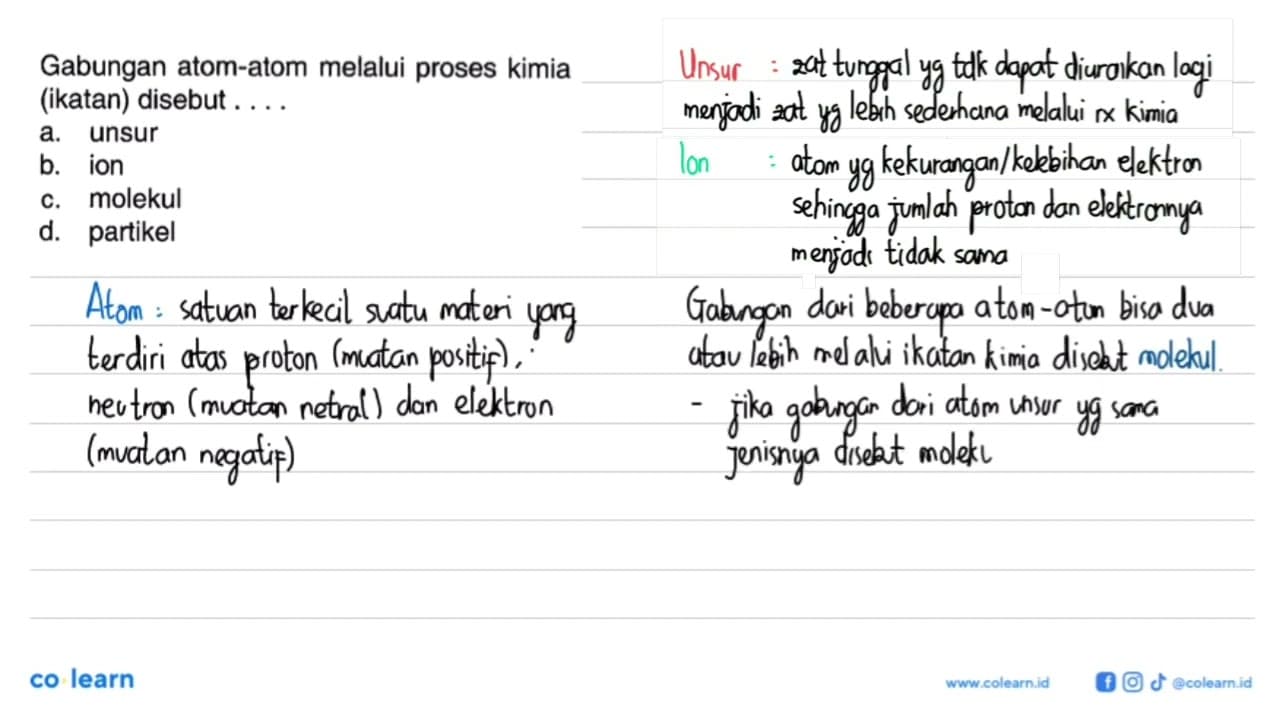 Gabungan atom-atom melalui proses kimia
(ikatan) disebut . . . .
a. unsur
b. ion
c. molekul
d. partikel
Unsur : zat tunggal yg tdk dapat diuraikan lagi
menjadi zat yg lebih sederhana melalui rx kimia
Ion : atom yg kekurangan/kelebihan elektron
sehingga jumlah proton dan elektronnya
menjadi tidak sama
Atom : satuan terkecil suatu materi yang
terdiri atas proton (muatan positif),
neutron (muatan netral) dan elektron
(muatan negatif)
Gabungan dari beberapa atom-atom bisa dua
atau lebih melalui ikatan kimia disebut molekul.
- jika gabungan dari atom unsur yg sama
jenisnya disebut molekl
co learn
www.colearn.id
@colearn.id